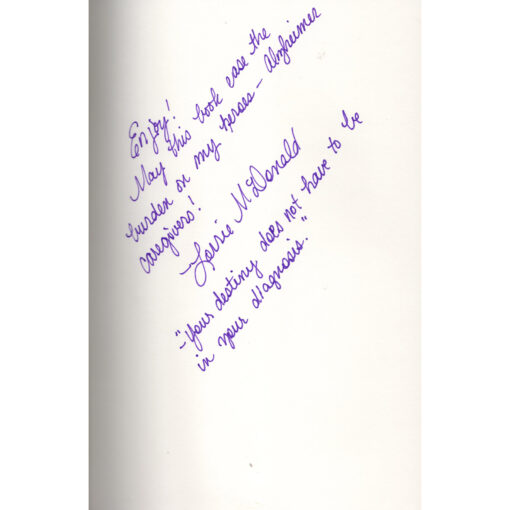 Enjoy!
May this book ease the
burden on my heroes - Alzheimer
caregivers!
~Lorrie McDonald
~"Your destiny does not have to be
in your diagnosis."